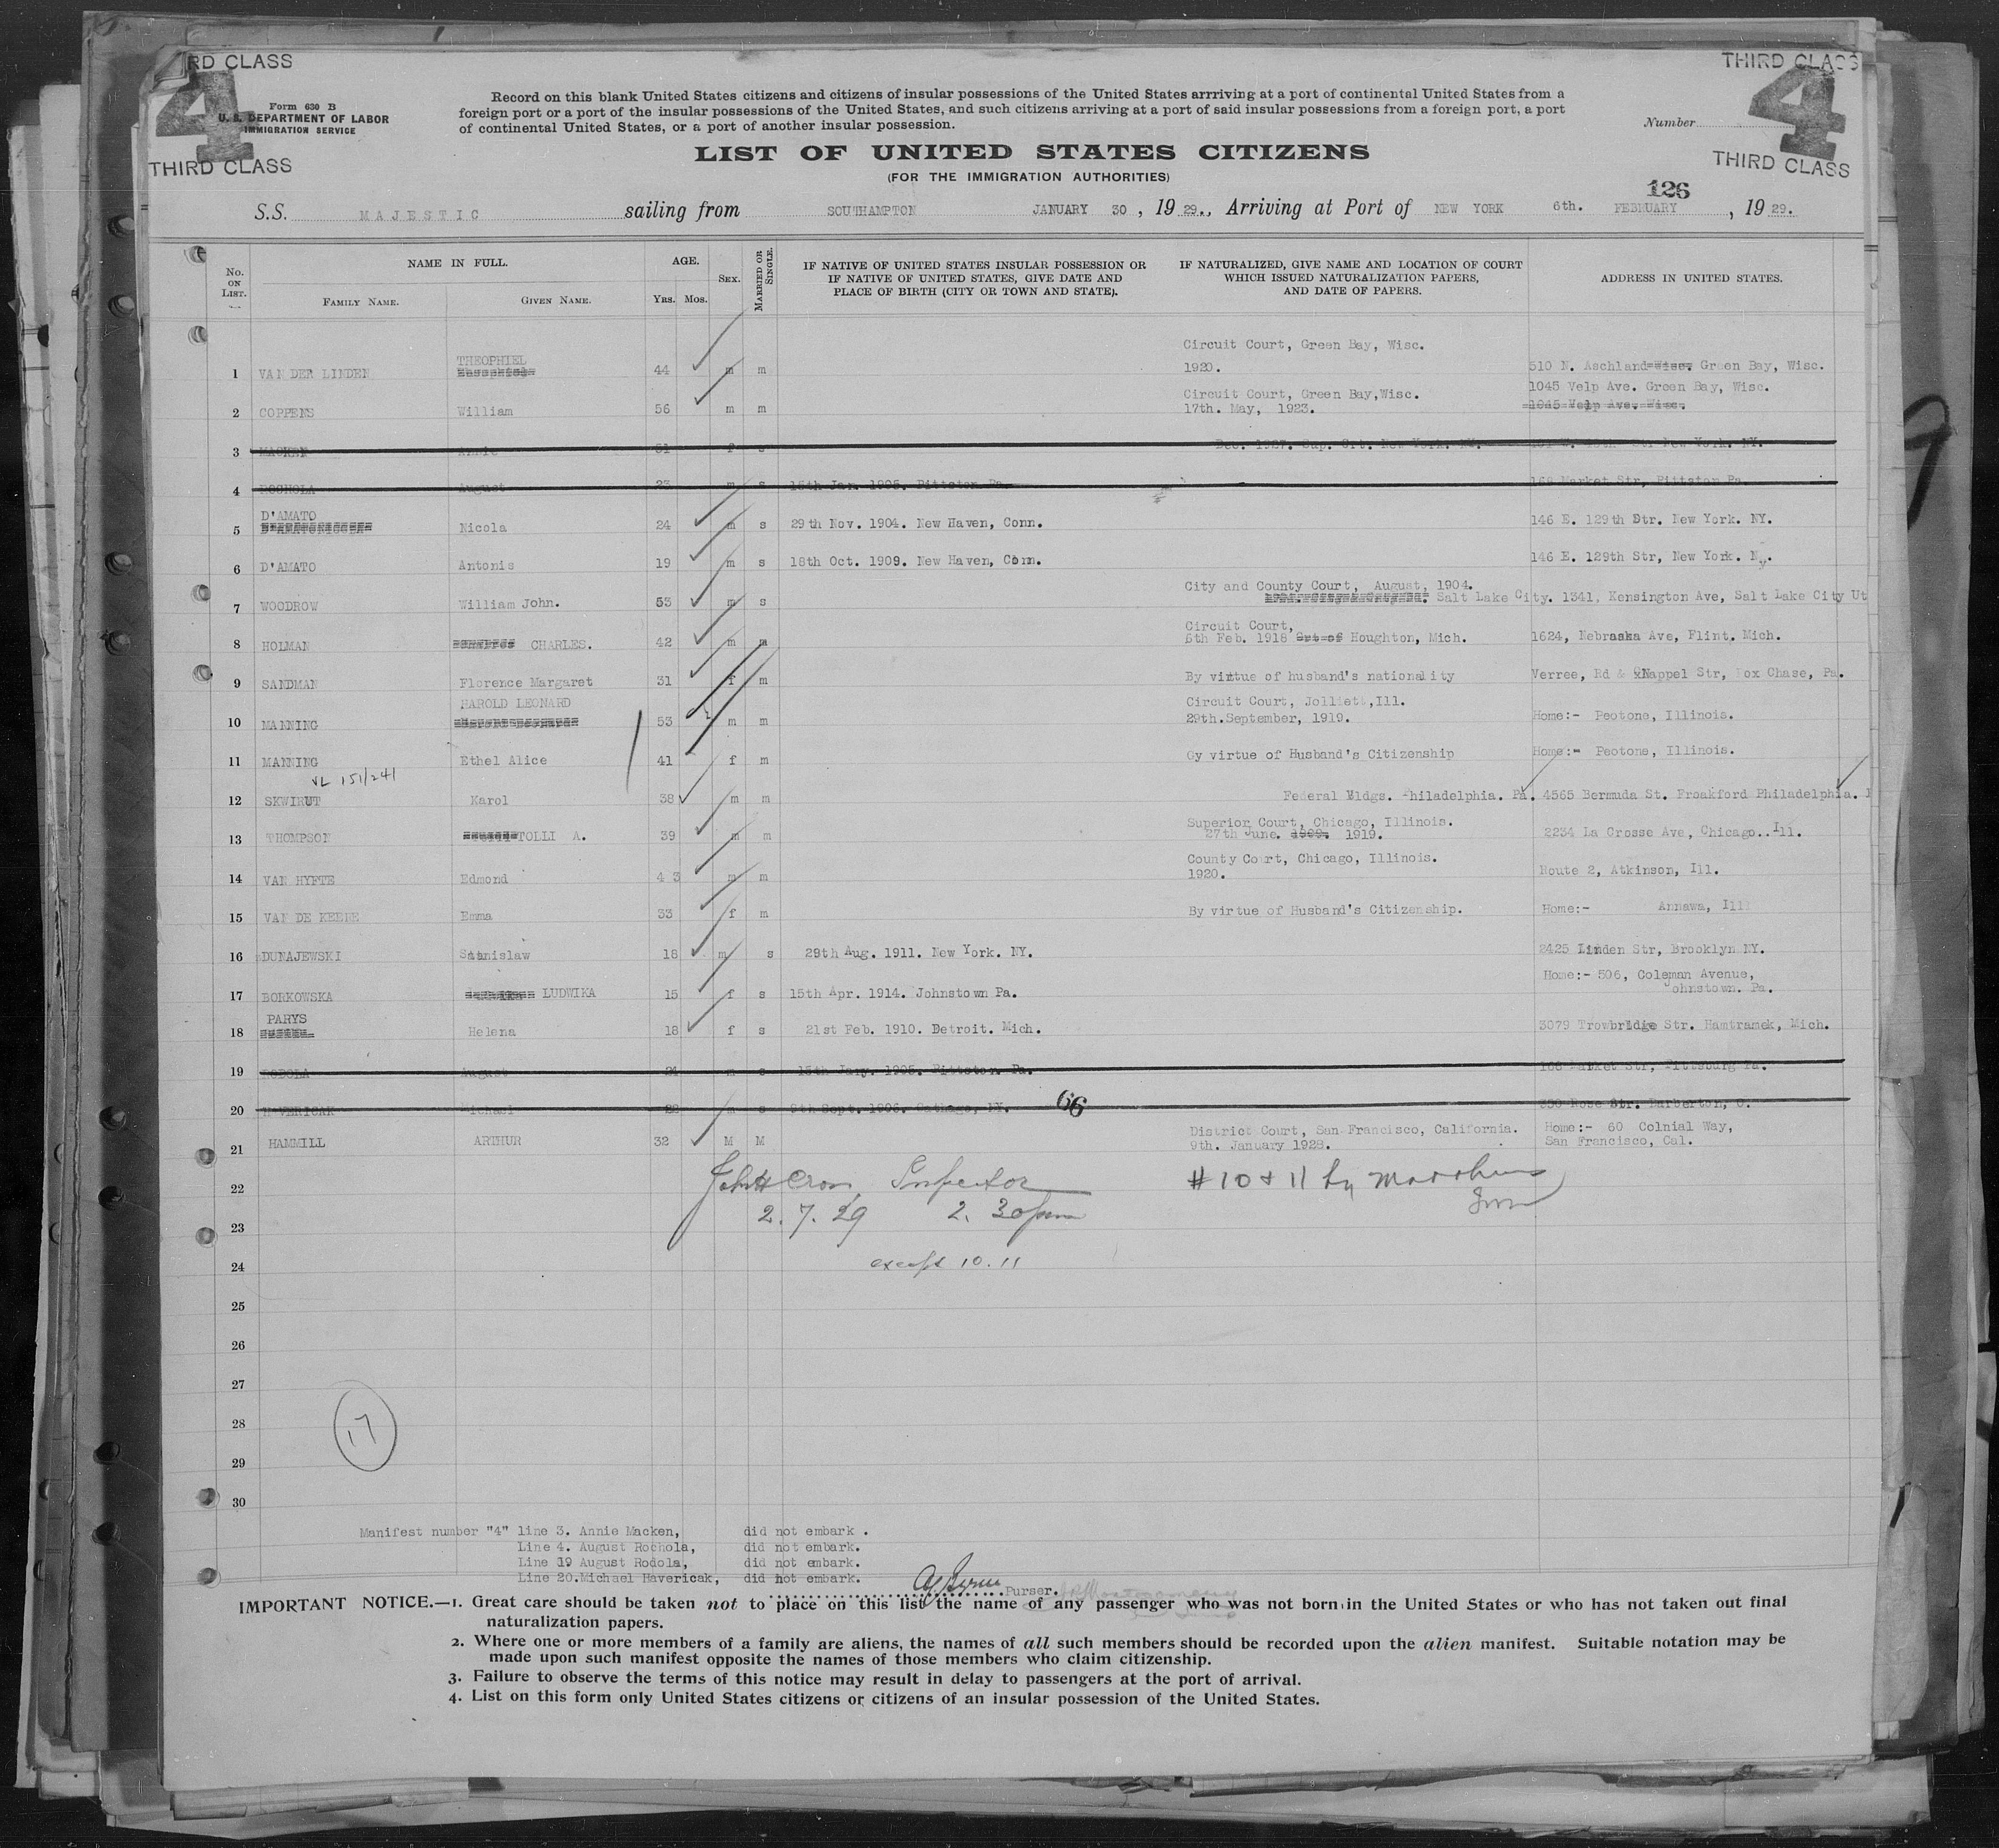 RD CLASS
THIRD CLASS
4
4
Form 630 B
U. S. DEPARTMENT OF LABOR
IMMIGRATION SERVICE
THIRD CLASS
THIRD CLASS
Record on this blank United States citizens and citizens of insular possessions of the United States arrriving at a port of continental United States from a
foreign port or a port of the insular possessions of the United States, and such citizens arriving at a port of said insular possessions from a foreign port, a port
of continental United States, or a port of another insular possession.
Number
LIST OF UNITED STATES CITIZENS
(FOR THE IMMIGRATION AUTHORITIES)
126
S.S. MAJESTIC sailing from SOUTHAMPTON JANUARY 30, 19 29., Arriving at Port of NEW YORK 6th. FEBRUARY, 19 29.
No. ON LIST.
NAME IN FULL.
FAMILY NAME. GIVEN NAME.
AGE.
Yrs. Mos.
SEX.
MARRIED OR SINGLE.
IF NATIVE OF UNITED STATES INSULAR POSSESSION OR
IF NATIVE OF UNITED STATES, GIVE DATE AND
PLACE OF BIRTH (CITY OR TOWN AND STATE).
IF NATURALIZED, GIVE NAME AND LOCATION OF COURT
WHICH ISSUED NATURALIZATION PAPERS,
AND DATE OF PAPERS.
ADDRESS IN UNITED STATES.
THEOPHIEL Circuit Court, Green Bay, Wisc.
1 VAN DER LINDEN 44 m m 1920. 510 N. Aschland Wisc. Green Bay, Wisc.
Circuit Court, Green Bay,Wisc. 1045 Velp Ave. Green Bay, Wisc.
2 COPPENS William 56 m m 17th. May, 1923. 1045 Velp Ave. Wisc.
3 MACKEN Annie f Dec. 1927. Sup. Crt. New York. NY. New York. NY.
4 ROCHOLA August 23 m s 15th Jan. 1905. Pittston Pa. 168 Market Str, Pittston Pa.
D'AMATO
5 Nicola 24 m s 29th Nov. 1904. New Haven, Conn. 146 E. 129th Str. New York. NY.
6 D'AMATO Antonis 19 m s 18th Oct. 1909. New Haven, Conn. 146 E. 129th Str, New York. Ny.
City and County Court, August, 1904.
7 WOODROW William John. 53 m s Salt Lake City. 1341, Kensington Ave, Salt Lake City Ut
Circuit Court,
8 HOLMAN CHARLES. 42 m m 5th Feb. 1918 Crt of Houghton, Mich. 1624, Nebraska Ave, Flint. Mich.
9 SANDMAN Florence Margaret 31 f m By virtue of husband's nationality Verree, Rd & Nappel Str, Fox Chase, Pa.
HAROLD LEONARD Circuit Court, Jolliett,Ill.
10 MANNING 53 m m 29th.September, 1919. Home:- Peotone, Illinois.
11 MANNING Ethel Alice 41 f m Gy virtue of Husband's Citizenship Home:- Peotone, Illinois.
VL 151/241
12 SKWIRUT Karol 38 m m Federal Bldgs. Philadelphia. Pa. 4565 Bermuda St. Froakford Philadelphia.
Superior Court, Chicago, Illinois.
13 THOMPSON TOLLI A. 39 m m 27th June. 1909. 1919. 2234 La Crosse Ave, Chicago..Ill.
County Court, Chicago, Illinois.
14 VAN HYFTE Edmond 43 m m 1920. Route 2, Atkinson, Ill.
15 VAN DE KEERE Emma 33 f m By virtue of Husband's Citizenship. Home:- Annawa, Ill
16 DUNAJEWSKI Stanislaw 18 m s 29th Aug. 1911. New York. NY. 2425 Linden Str, Brooklyn NY.
Home:- 506, Coleman Avenue,
17 BORKOWSKA LUDWIKA 15 f s 15th Apr. 1914. Johnstown Pa. Johnstown. Pa.
PARYS
18 Helena 18 f s 21st Feb. 1910. Detroit. Mich. 3079 Trowbridge Str. Hamtramck, Mich.
19 RODOLA August 24 m s 15th Jany. 1905. Pittston. Pa. 168 Market Str, Pittsburg Pa.
20 HAVERICAK Michael 22 m s 9th Sept. 1906. NY. 66 Rose Str. Barberton, O.
District Court, San Francisco, California. Home:- 60 Colnial Way,
21 HAMMILL ARTHUR 32 M M 9th. January 1928. San Francisco, Cal.
22 John H Cron Inspector #10 & 11 by
23 2. 7. 29 2. 30 pm
24 except 10. 11
25
26
27
28
17
29
30
Manifest number "4" line 3. Annie Macken, did not embark .
Line 4. August Rochola, did not embark.
Line 19 August Rodola, did not embark.
Line 20.Michael Havericak, did not embark.
Purser.
IMPORTANT NOTICE.—1. Great care should be taken not to place on this list the name of any passenger who was not born in the United States or who has not taken out final
naturalization papers.
2. Where one or more members of a family are aliens, the names of all such members should be recorded upon the alien manifest. Suitable notation may be
made upon such manifest opposite the names of those members who claim citizenship.
3. Failure to observe the terms of this notice may result in delay to passengers at the port of arrival.
4. List on this form only United States citizens or citizens of an insular possession of the United States.